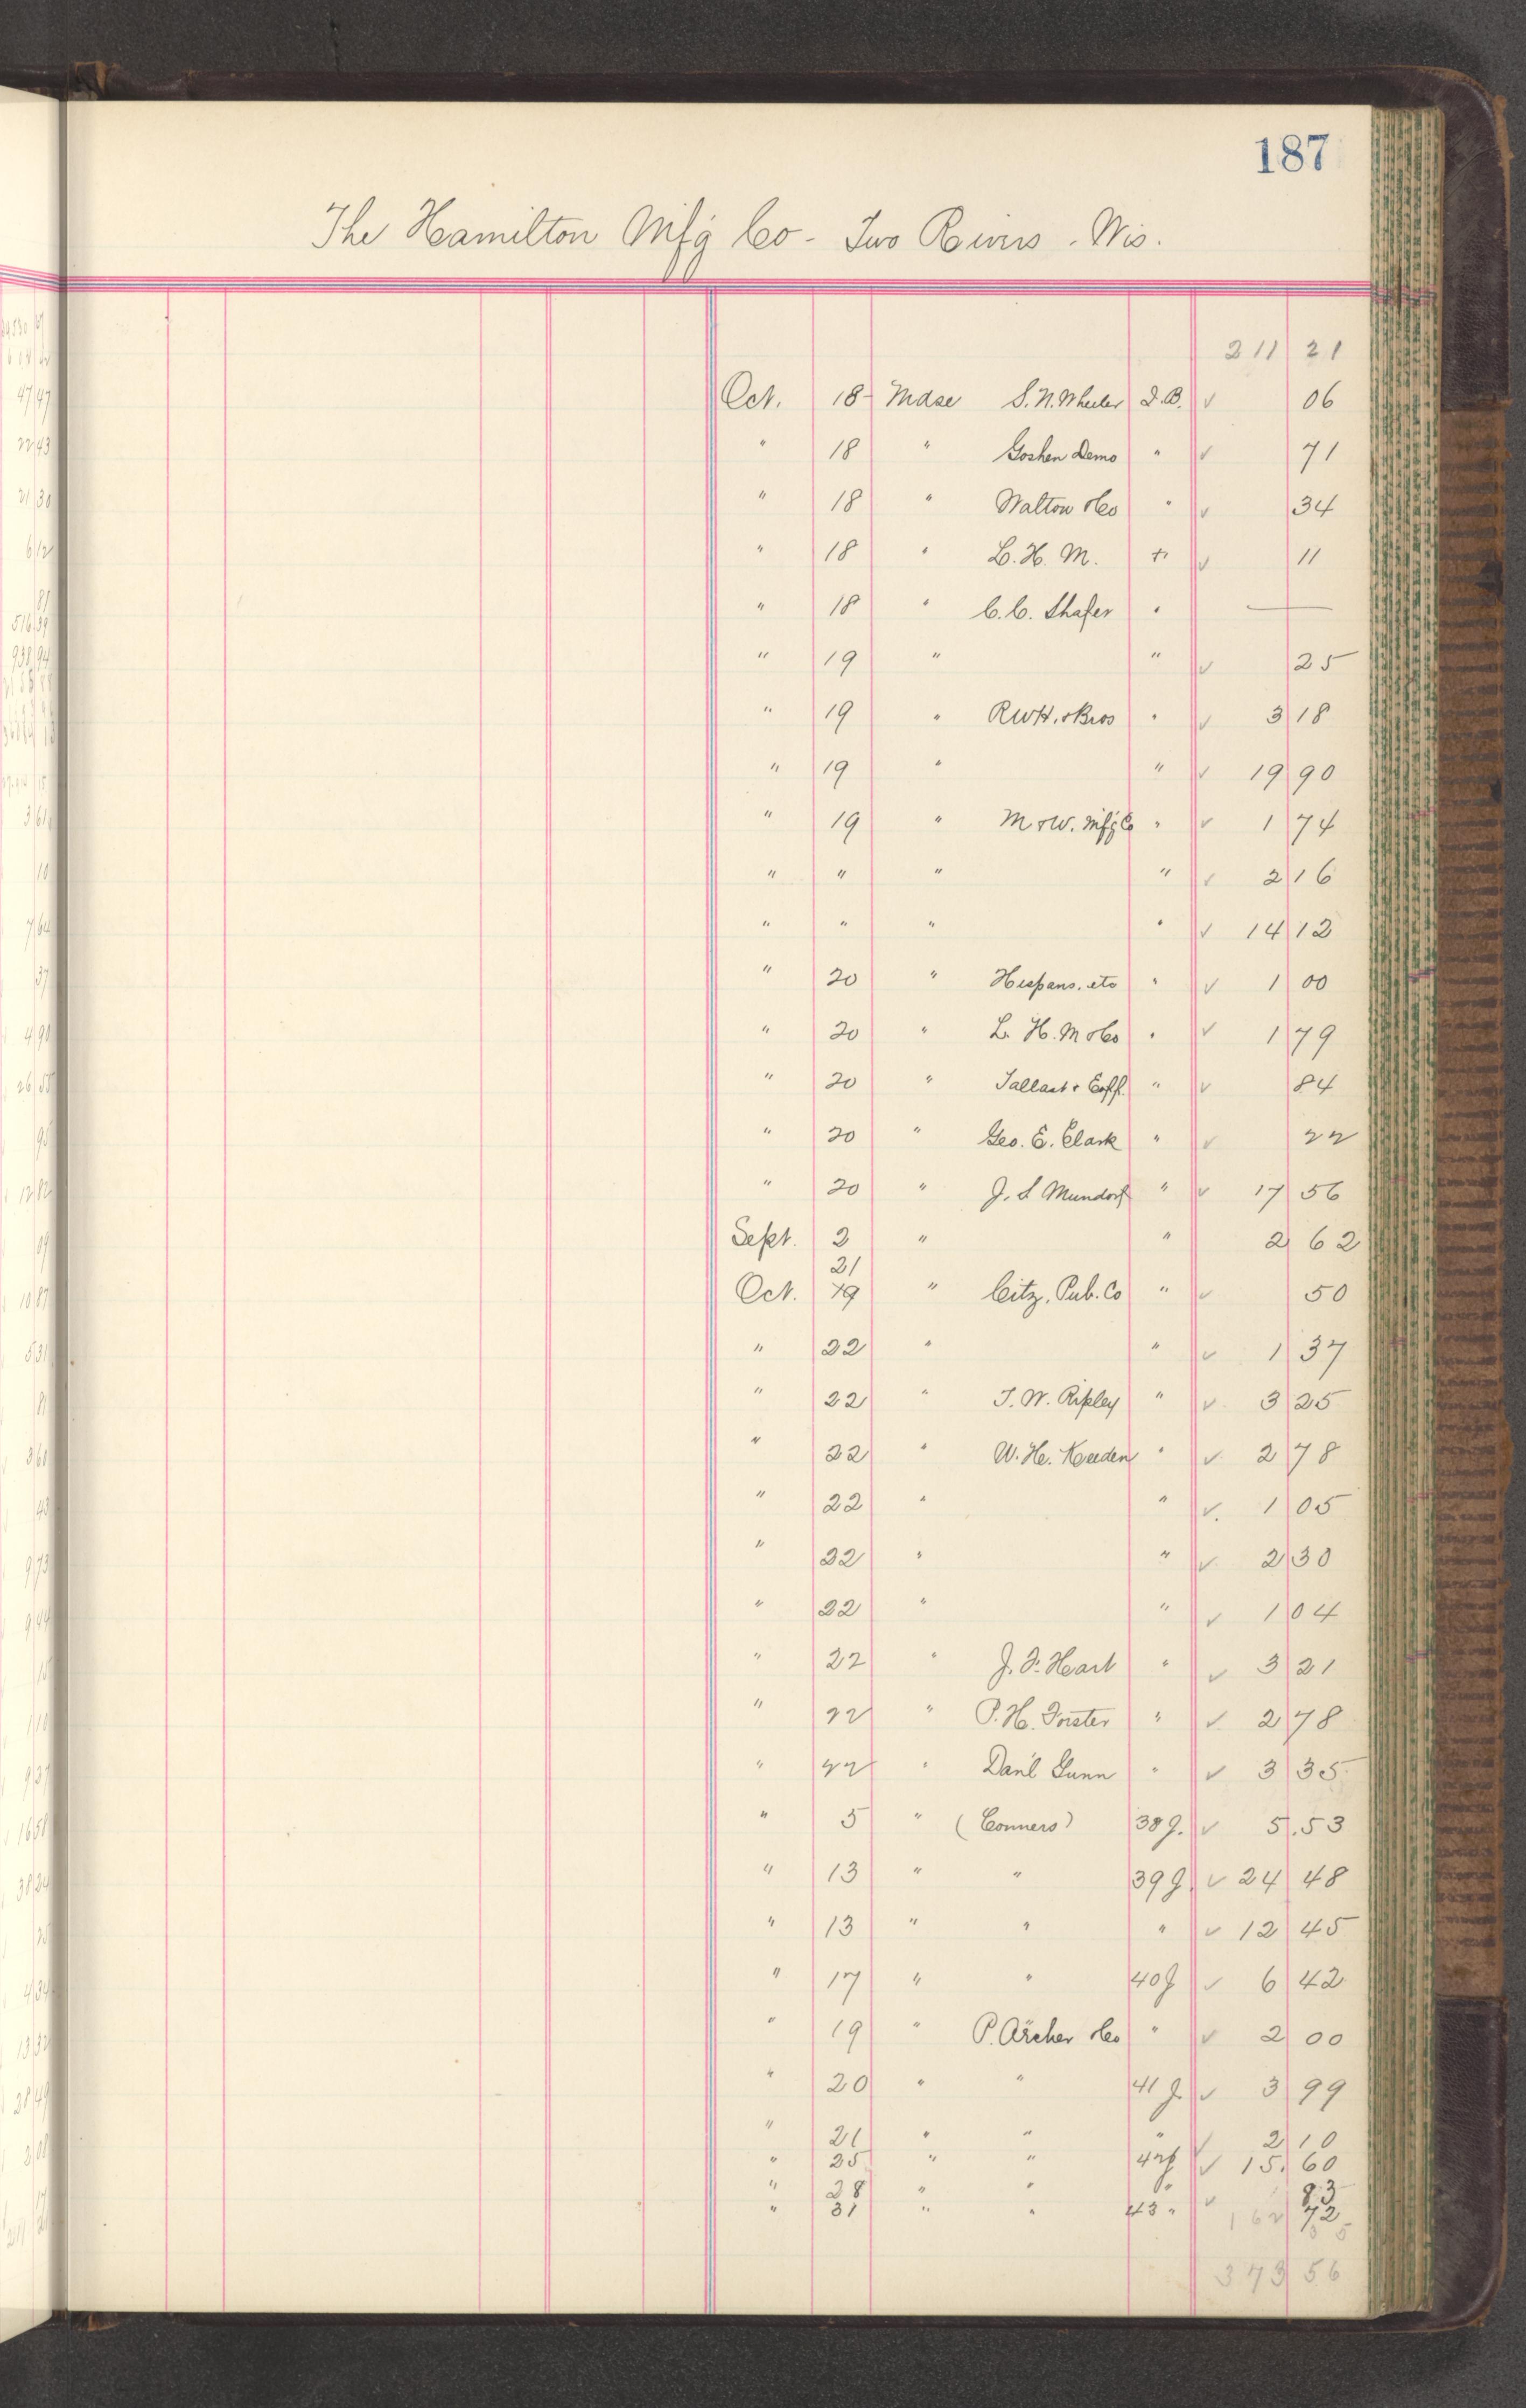 187
The Hamilton Mfg Co - Two Rivers - Wis.
211 21
Oct. 18 Mdse S. N. Wheeler I.B. ✓ 06
" 18 " Goshen Demo " ✓ 71
" 18 " Walton & Co " ✓ 34
" 18 " L. H. M. " ✓ 11
" 18 " C. C. Shafer " —
" 19 " " ✓ 25
" 19 " RWH. & Bros " ✓ 3 18
" 19 " " ✓ 19 90
" 19 " M & W. Mfg Co " ✓ 1 74
" " " " ✓ 2 16
" " " " ✓ 14 12
" 20 " Hespans. etc " ✓ 1 00
" 20 " L. H. M & Co " ✓ 1 79
" 20 " & " ✓ 84
" 20 " Geo. E. Clark " ✓ 22
" 20 " J. S Mundorf " ✓ 17 56
Sept. 2 " " 2 62
21
Oct. 19 " Citz. Pub. Co " ✓ 50
" 22 " " ✓ 1 37
" 22 " T. W. Ripley " ✓ 3 25
" 22 " W. H. " ✓ 2 78
" 22 " " ✓ 1 05
" 22 " " ✓ 2 30
" 22 " " ✓ 1 04
" 22 " J. F. Hart " ✓ 3 21
" 22 " P. H. Forster " ✓ 2 78
" 22 " Dan'l Gunn " ✓ 3 35
" 5 " (Conners) 38 J. ✓ 5.53
" 13 " " 39 J. ✓ 24 48
" 13 " " " ✓ 12 45
" 17 " " 40 J ✓ 6 42
" 19 " P. Archer & Co " ✓ 2 00
" 20 " " 41 J ✓ 3 99
" 21 " " " ✓ 2 10
" 25 " " 42 J ✓ 15. 60
" 28 " " " ✓ 83
" 31 " " 43 " 72
162 35
373 56